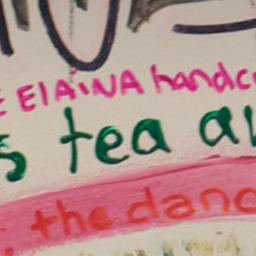 ELAINA handc
s tea a
the danc